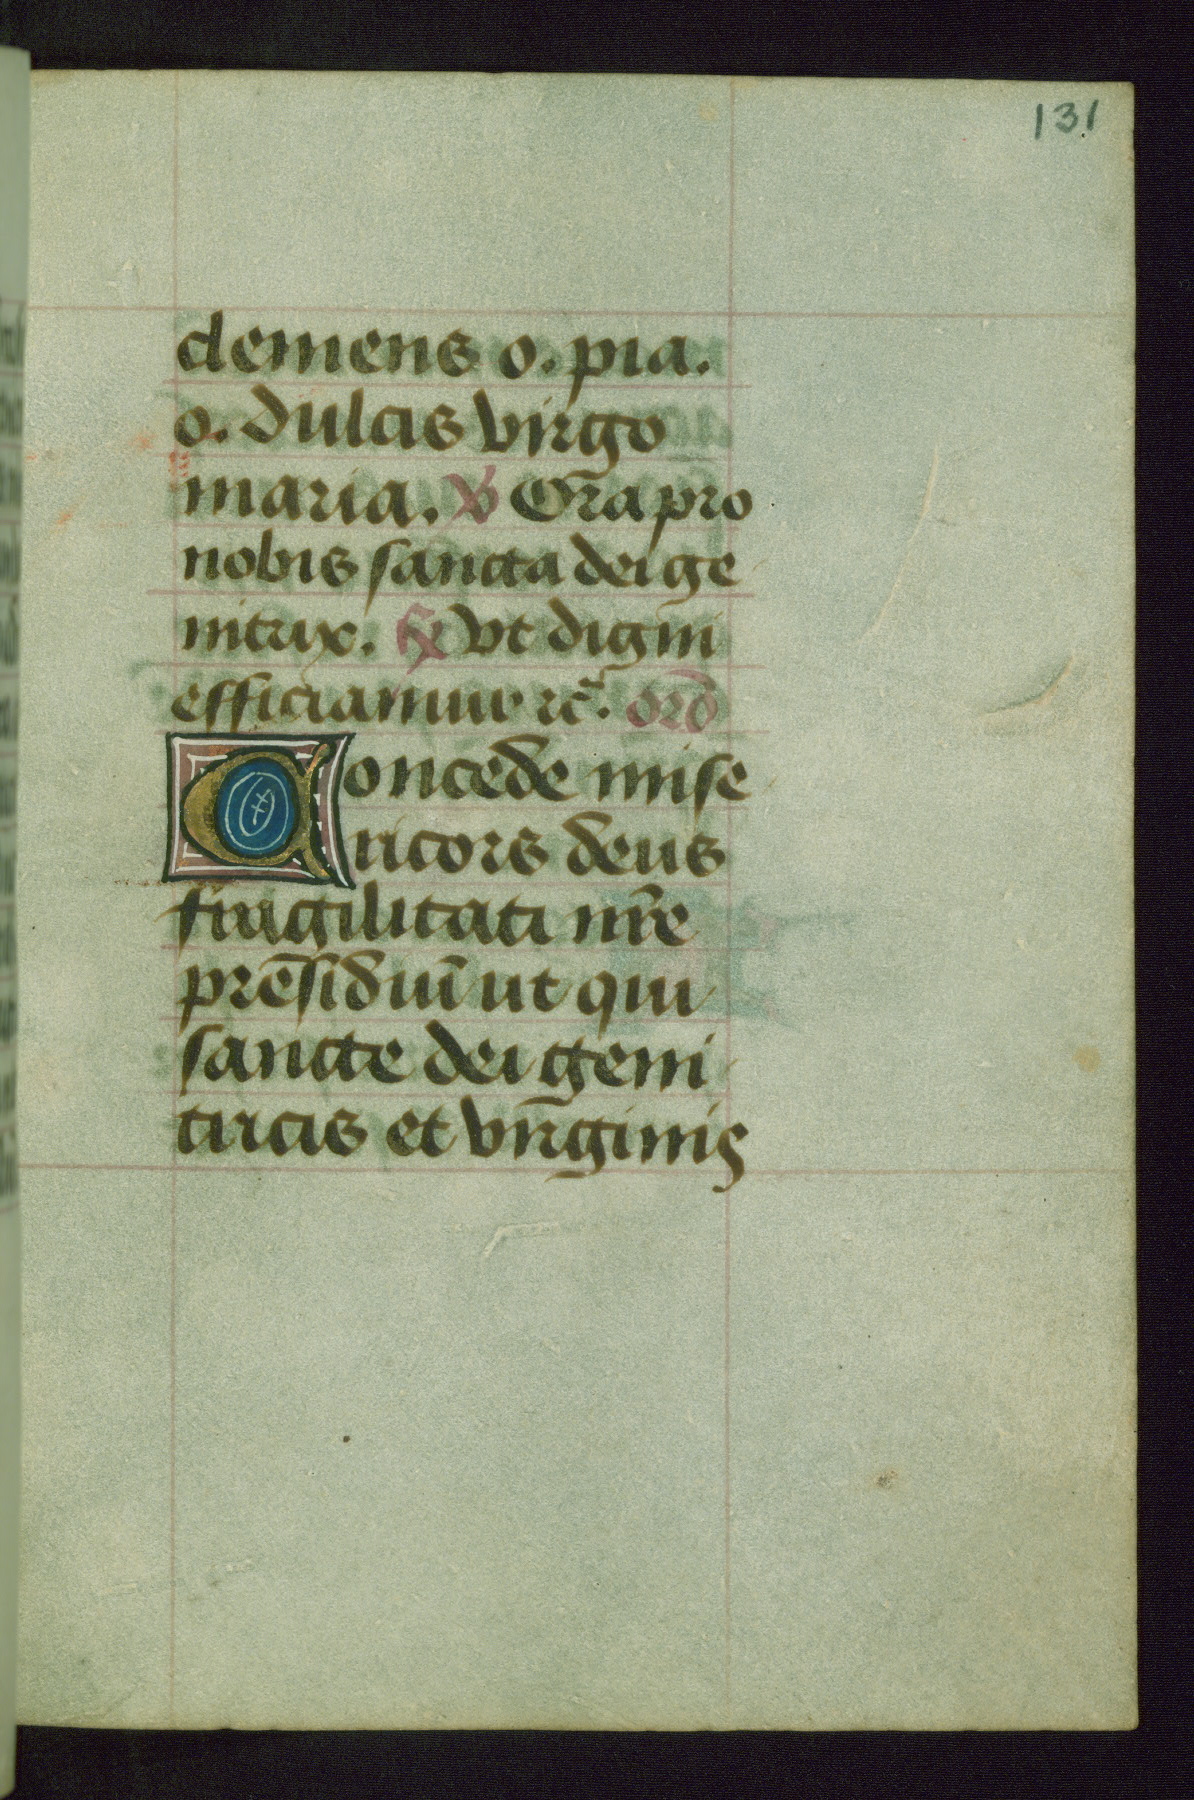 131
clemens o. pia.
o. dulcis virgo
maria. ℣ Ora pro
nobis sancta dei ge
nitrix. ℟ Vt digni
efficiamur ⁊c̃. orõ
Concede mise
ricors deus
fragilitati nr̃e
presidiũ ut qui
sancte dei geni
tricis et virginis